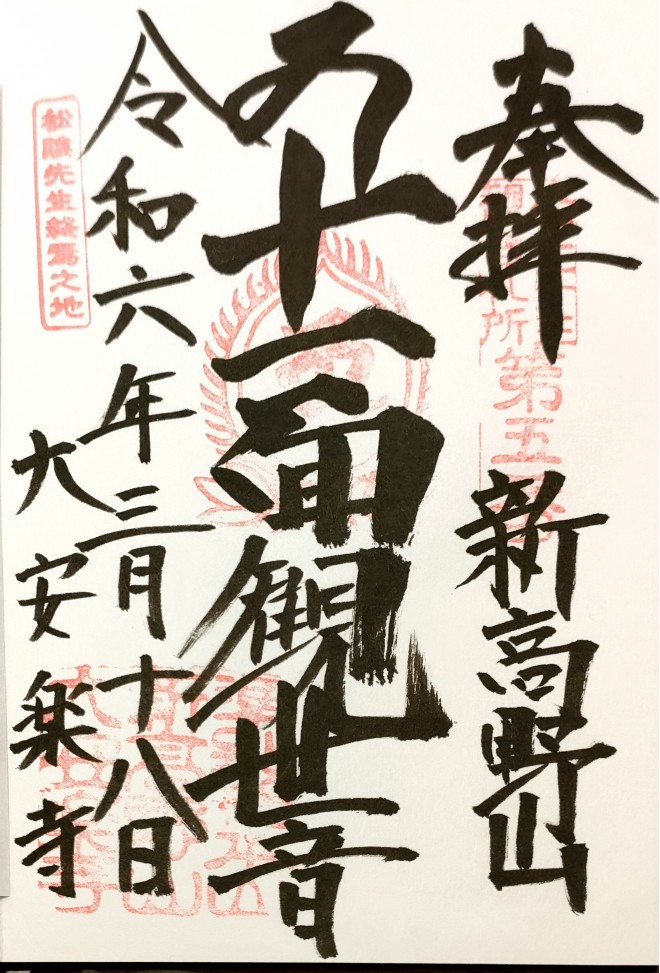 奉拝
新高野山
所第五
十一面観世音
令和六年三月十八日
大安楽寺
松陰先生終焉之地